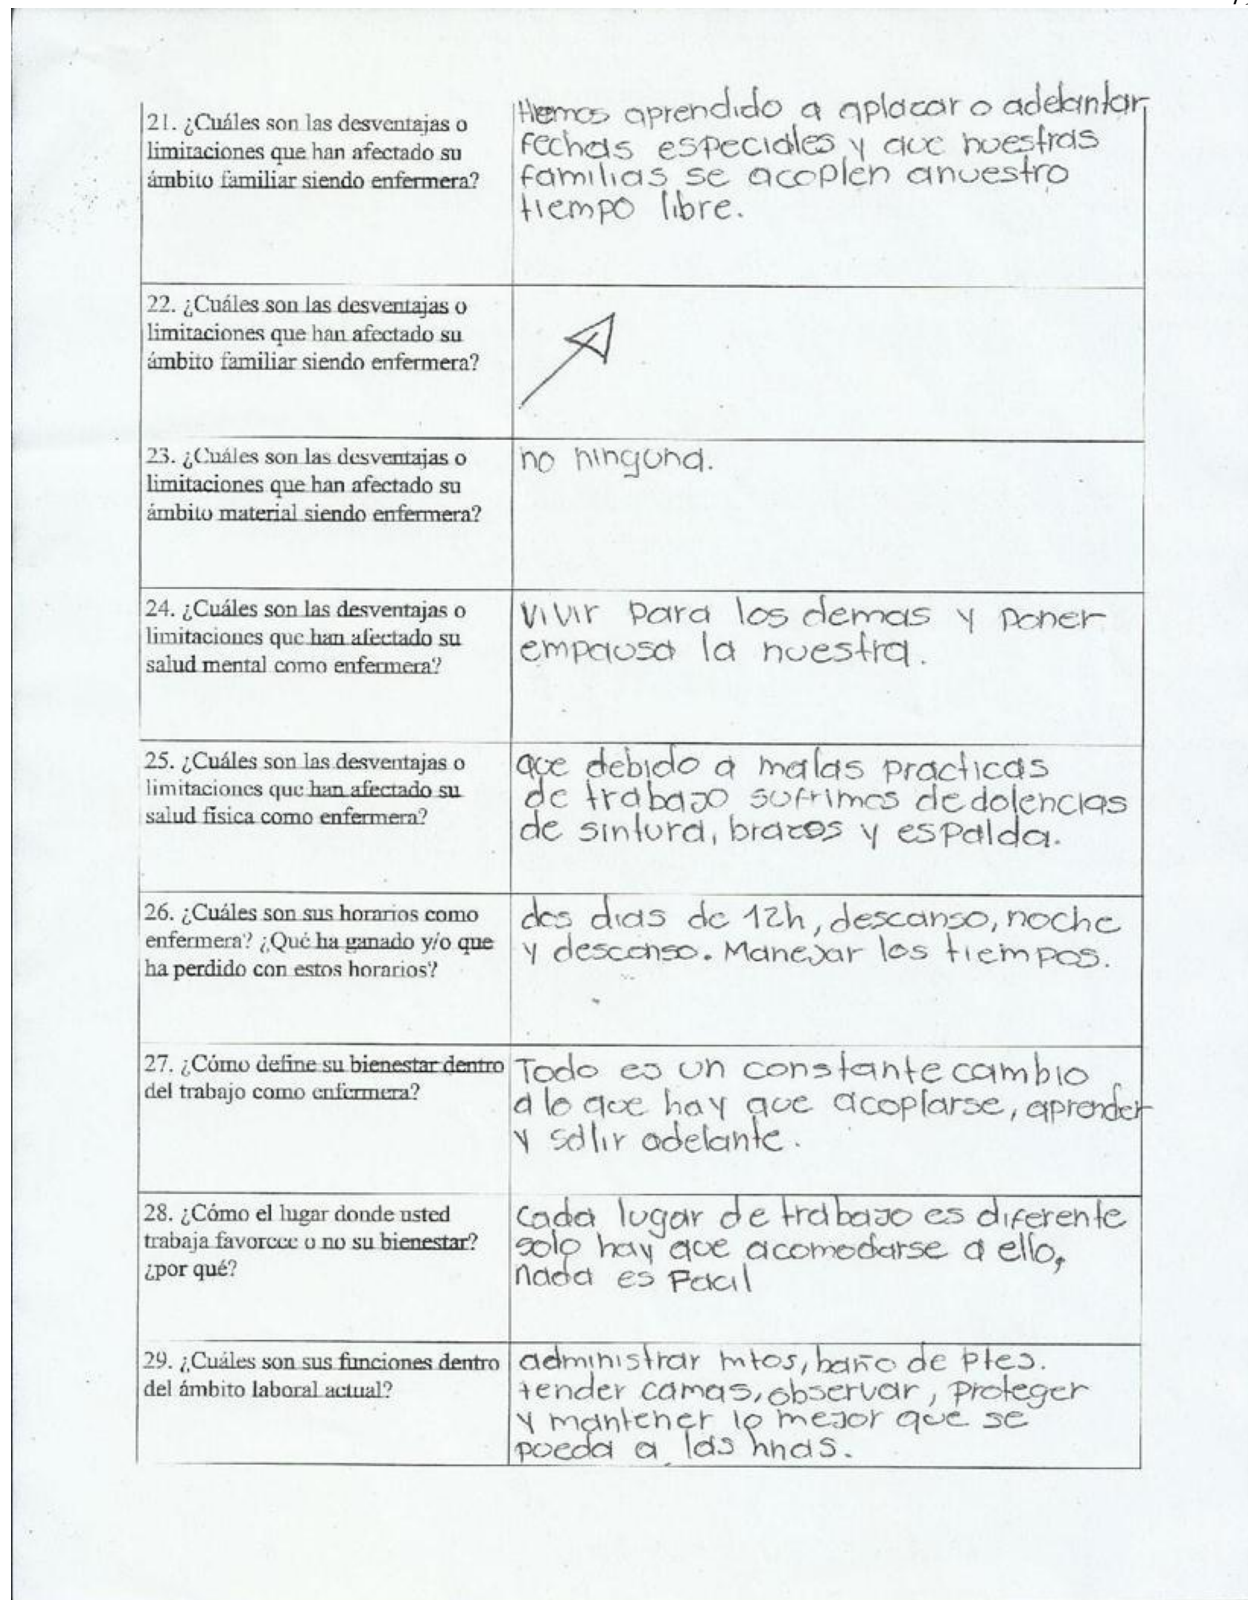 21. ¿Cuáles son las desventajas o
limitaciones que han afectado su
ámbito familiar siendo enfermera?
Hemos aprendido a aplacar o adelantar
fechas especiales y que nuestras
familias se acoplen anuestro
tiempo libre.
22. ¿Cuáles son las desventajas o
limitaciones que han afectado su
ámbito familiar siendo enfermera?
23. ¿Cuáles son las desventajas o
limitaciones que han afectado su
ámbito material siendo enfermera?
no ninguna.
24. ¿Cuáles son las desventajas o
limitaciones que han afectado su
salud mental como enfermera?
Vivir para los demas y poner
empausa la nuestra.
25. ¿Cuáles son las desventajas o
limitaciones que han afectado su
salud física como enfermera?
que debido a malas practicas
de trabajo sufrimos de dolencias
de sintura, brazos y espalda.
26. ¿Cuáles son sus horarios como
enfermera? ¿Qué ha ganado y/o que
ha perdido con estos horarios?
dos dias de 12h, descanso, noche
y descanso. Manejar los tiempos.
27. ¿Cómo define su bienestar dentro
del trabajo como enfermera?
Todo es un constante cambio
a lo que hay que acoplarse, aprender
y salir adelante.
28. ¿Cómo el lugar donde usted
trabaja favorece o no su bienestar?
¿por qué?
Cada lugar de trabajo es diferente
solo hay que acomodarse a ello,
nada es Facil
29. ¿Cuáles son sus funciones dentro
del ámbito laboral actual?
administrar mtos, baño de ptes.
tender camas, observar, proteger
y mantener lo mejor que se
pueda a las hnas.